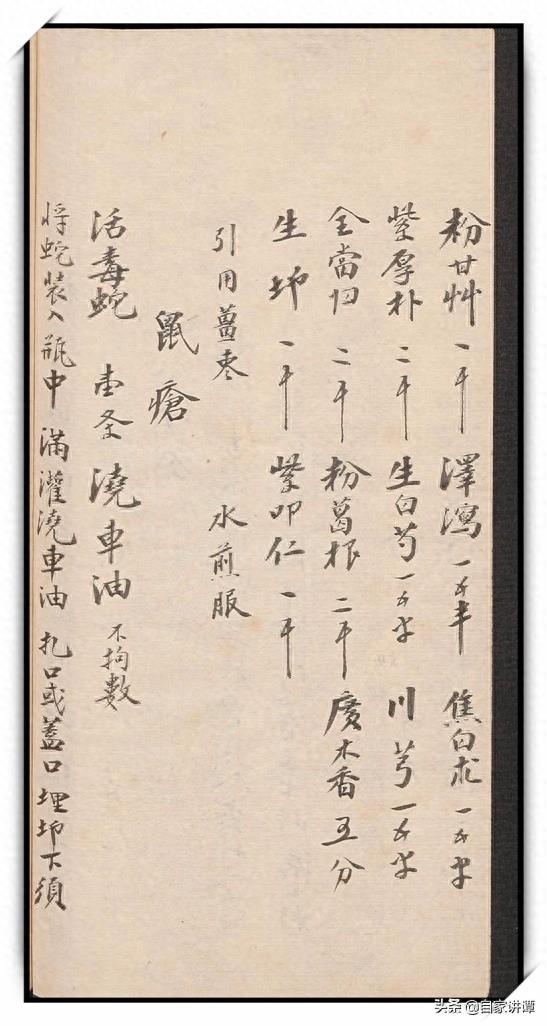 粉甘艸 一千 澤瀉 一钱半 焦白朮 一钱半
紫厚朴 二千 生白芍 一钱半 川芎 一钱半
全當归 二千 粉葛根 二千 廣木香 五分
生地 一千 紫叩仁 一千
引用薑枣 水煎服
鼠瘡
活毒蛇 壹条 澆車油 不拘數
将蛇裝入瓶中 滿灌澆車油 扎口或蓋口埋地下須
头条 @自家讲谭